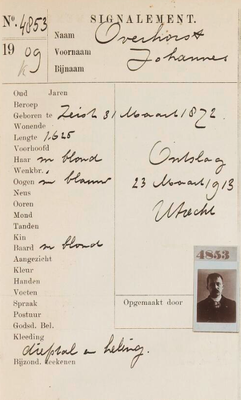 No. 4853
SIGNALEMENT.
1909
Naam Overhorst
Voornaam Johannes
Bijnaam
Oud Jaren
Beroep
Geboren te Zeist 31 Maart 1872.
Wonende
Lengte 1.625
Voorhoofd
Haar m blond Ontslag
Wenkbr.
Oogen m blauw 23 Maart 1913
Neus
Ooren Utrecht
Mond
Tanden
Kin
Baard m blond
Aangezicht
Kleur 4853
Handen
Voeten
Spraak Opgemaakt door
Postuur
Godsd. Bel.
Kleeding
diefstal en heling.
Bijzond. teekenen